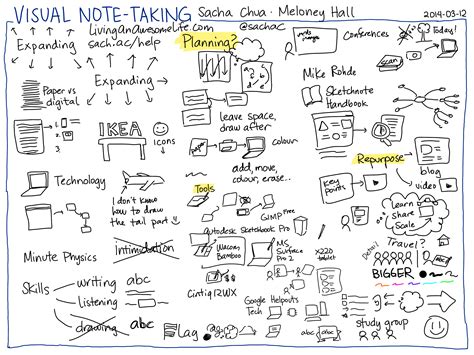 VISUAL NOTE-TAKING Sacha Chua · Meloney Hall 2014-03-12
LivingAnAwesomeLife.com @sachac
sach.ac/help
Expanding
Expanding
Planning?
Conferences
Today!
scan
Mike Rohde
Sketchnote
Handbook
Paper vs
digital
1.
2.
3.
IKEA
Icons
leave space,
draw after
colour
add, move,
colour, erase..
Repurpose
blog
video
key
points
Technology
I don't know
how to draw
the tail part
Tools
GIMP Free
Autodesk Sketchbook Pro
Wacom
Bamboo
MS
Surface
Pro 2
X220
tablet
Cintiq 12WX
learn
share
scale
Travel?
Detail
abc
BIGGER
Minute Physics
Intimidation
Skills
writing abc
listening
drawing abc
Lag
Google Helpouts
Tech
abc
abc
study group